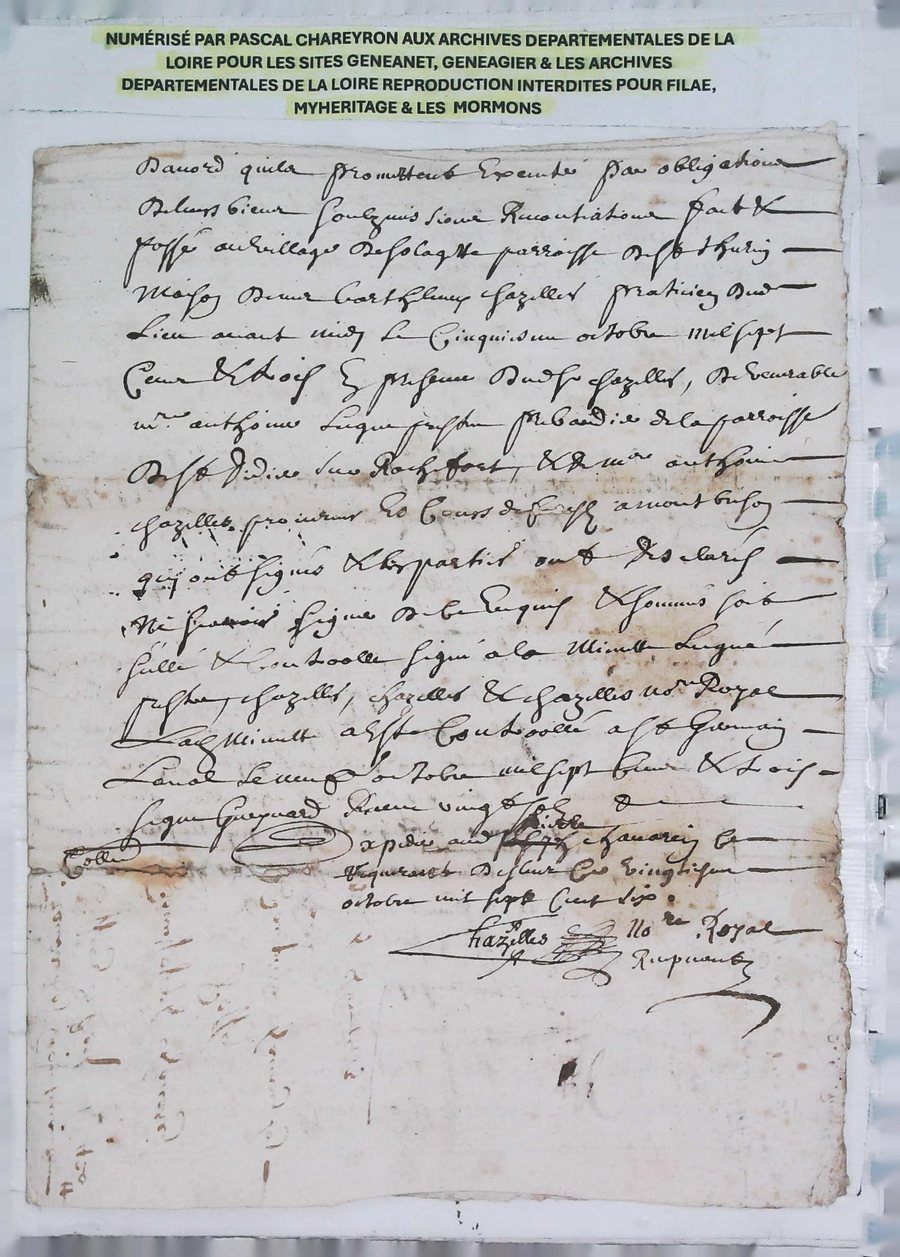 NUMÉRISÉ PAR PASCAL CHAREYRON AUX ARCHIVES DEPARTEMENTALES DE LA
LOIRE POUR LES SITES GENEANET, GENEAGIER & LES ARCHIVES
DEPARTEMENTALES DE LA LOIRE REPRODUCTION INTERDITES POUR FILAE,
MYHERITAGE & LES MORMONS
Daccord quils promettent Executé par obligations
de leurs biens soubzmissions Renontiations fait &
passé au village de solagtte parroisse de st thurin
maison de me barthlemy chazelles praticien dud
Lieu avant midy le Cinquiesme octobre mil sept
Cens & trois En presence dud sr chazelles, de venerable
mre anthoine Luque prestre prebandier de la parroisse
de st didier sur Rochefort, & de mre anthoine
chazelles procureur Es Cours de a montbrison
qui ont signés & les parties ont desclarés
Ne scavoir signer de ce Enquis & sommés soit
sellé & Controollé signé a la Minutte Luque
prestre, chazelles, chazelles & chazelles nore Royal
Lad Minutte a Esté Controollé a st Germain
Laval le neuf octobre mil sept Cens & trois
signe Guepuard Receu vingt
Collé
xpedié aud chavarein Ce
Requerant Ce vingtiesme
octobre mil sept Cent six
Chazelles No re Royal